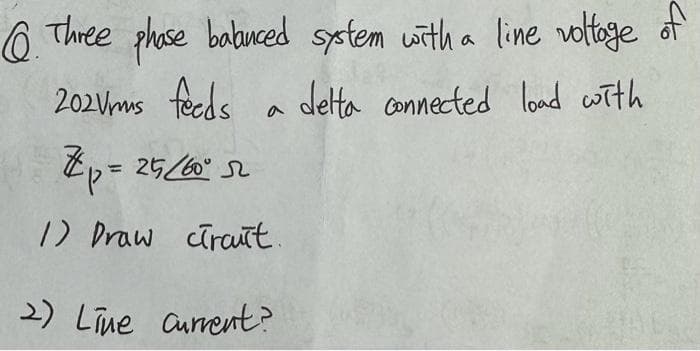 Q. Three phase balanced system with a line voltage of
202Vrms feeds a delta connected load with
Zp = 25∠60° Ω
1) Draw circuit.
2) Line current?